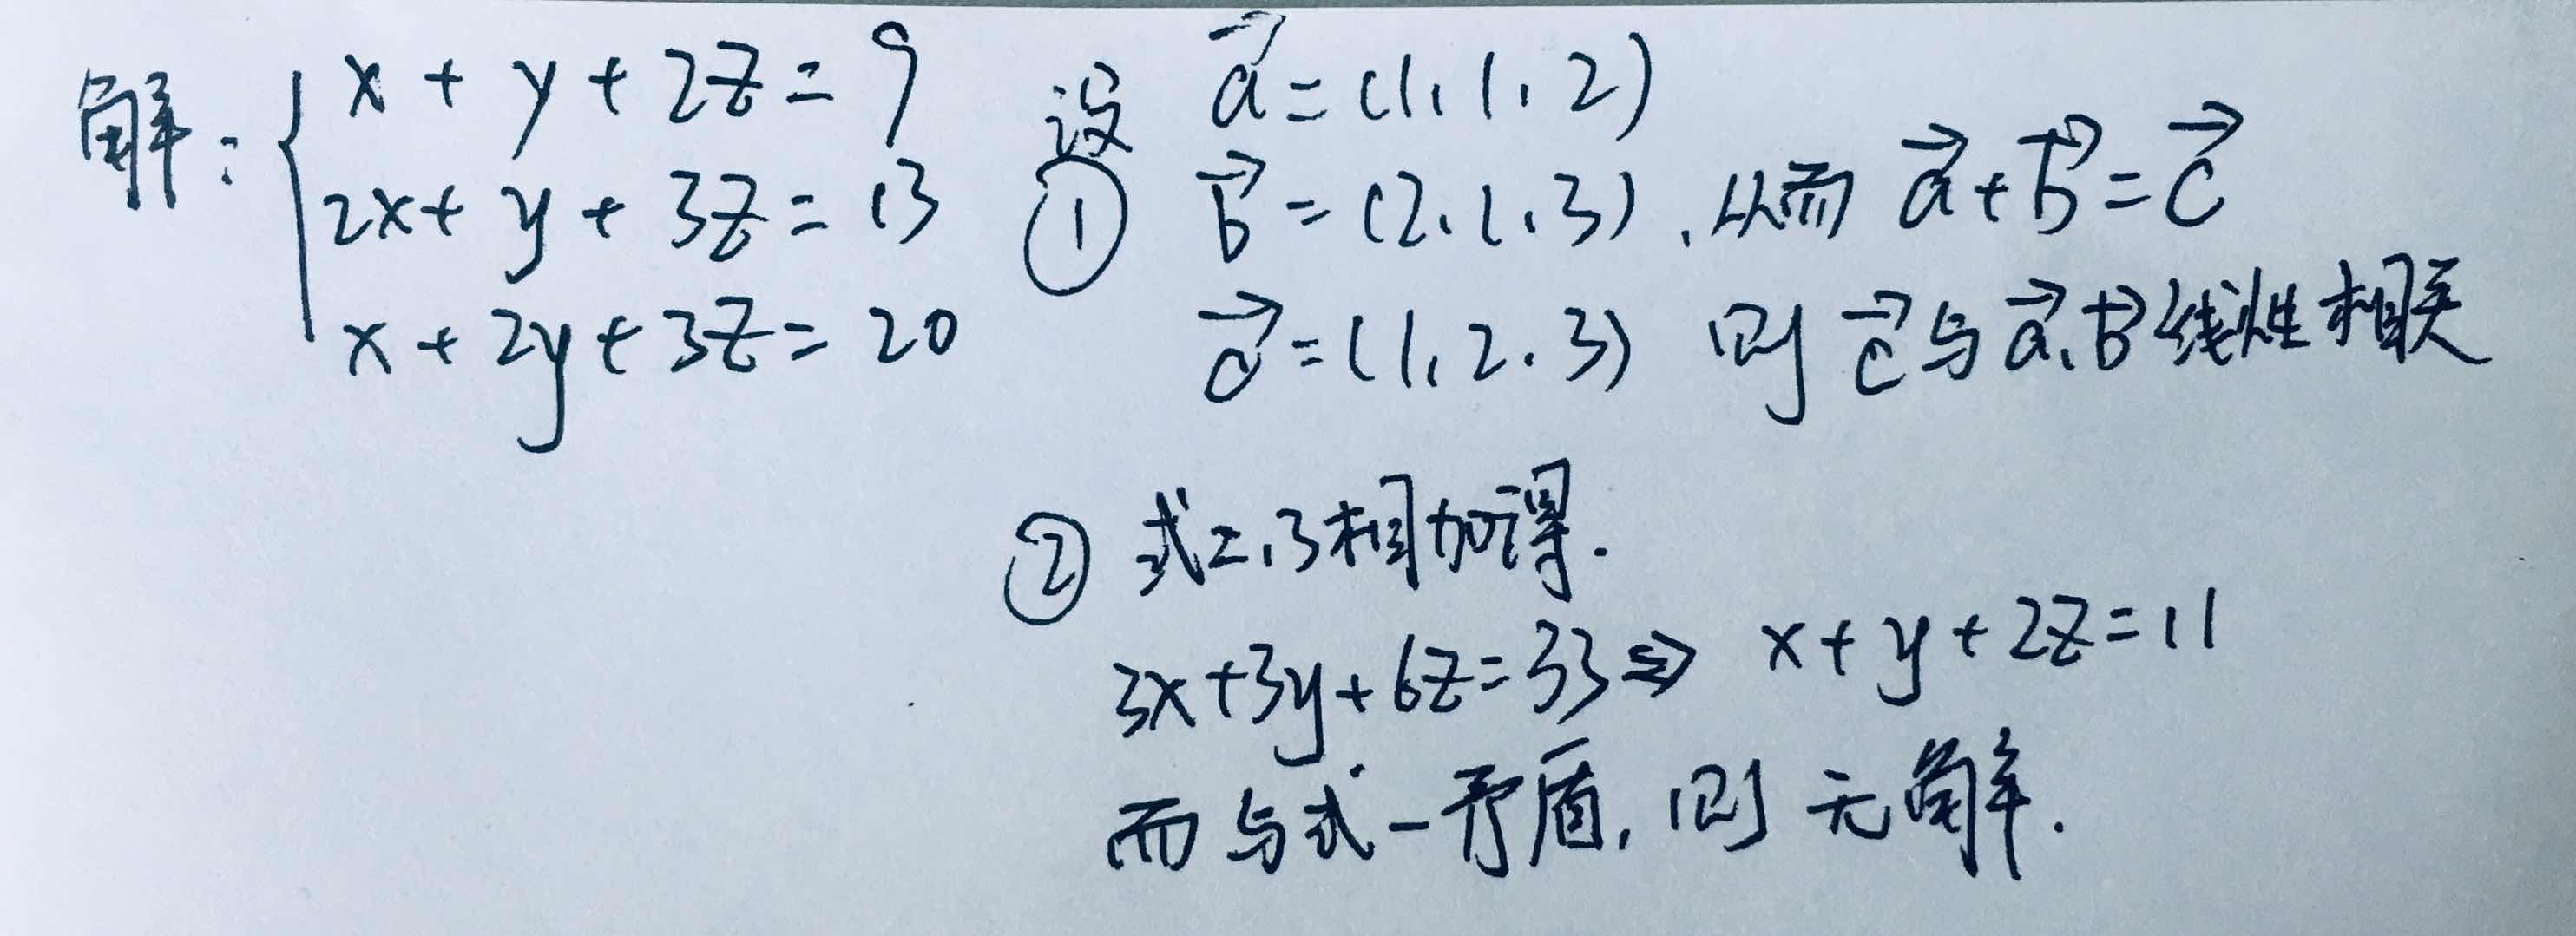 解：
x + y + 2z = 9
2x + y + 3z = 13
x + 2y + 3z = 20
设
① a⃗ = (1, 1, 2)
b⃗ = (2, 1, 3), 从而 a⃗ + b⃗ = c⃗
c⃗ = (1, 2, 3) 则 c⃗ 与 a⃗、b⃗ 线性相关
② 式二、3相加得.
3x+3y+6z=33 ⇒ x+y+2z=11
而与式一矛盾, 则无解.